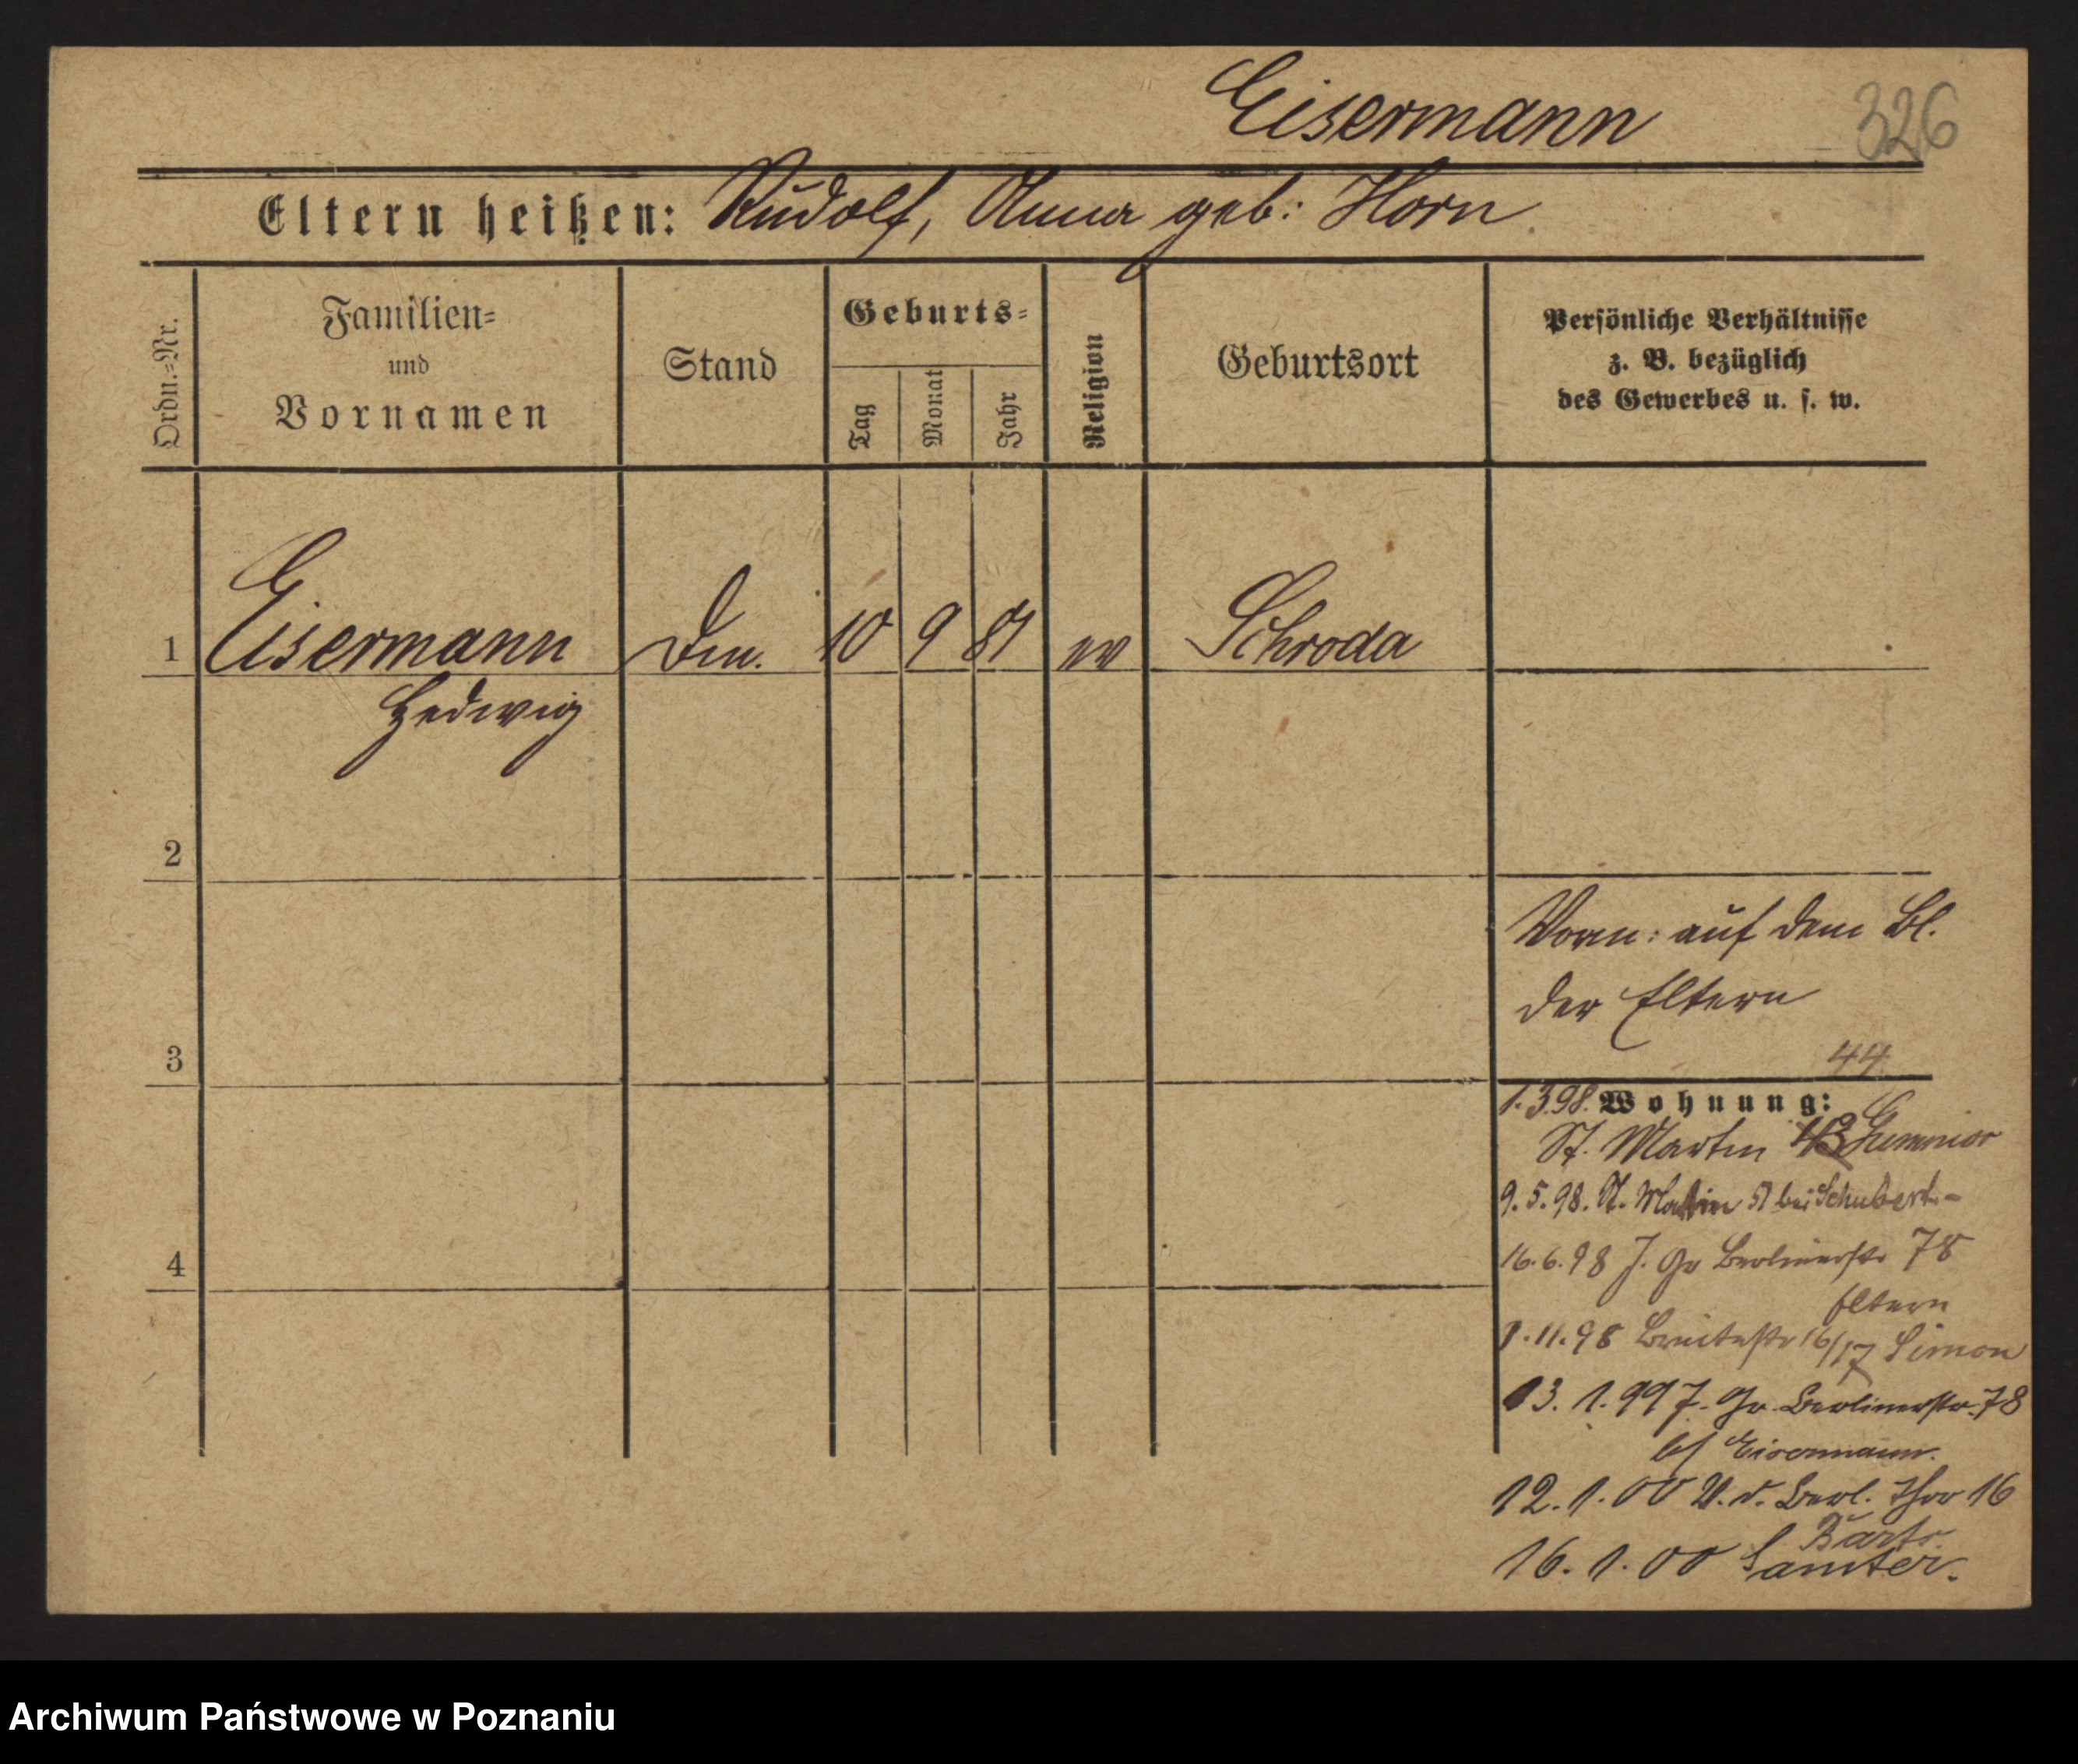 Eisermann
326
Eltern heißen: Rudolf, Anna geb: Horn
Ordn.-Nr.
Familien-
und
Vornamen
Stand
Geburts-
Tag
Monat
Jahr
Religion
Geburtsort
Persönliche Verhältnisse
z. B. bezüglich
des Gewerbes u. s. w.
1 Eisermann 10 9 81 ev Schroda
Hedwig
2
Vorn: auf dem Bl.
der Eltern
3
44
1.3.98. Wohnung:
St. Martin 43
9.5.98. St. Martin 51 bei Schubert.-
16.6.98 J. Gr Berlinerstr 78
4
Eltern
1.11.98 Breitestr 16/17 Simon
13.1.99 J. Gr. Berlinerstr. 78
b/ Eisermann.
12.1.00 V. d. Berl. Thor 16
Bartz.
16.1.00 Samter.
Archiwum Państwowe w Poznaniu